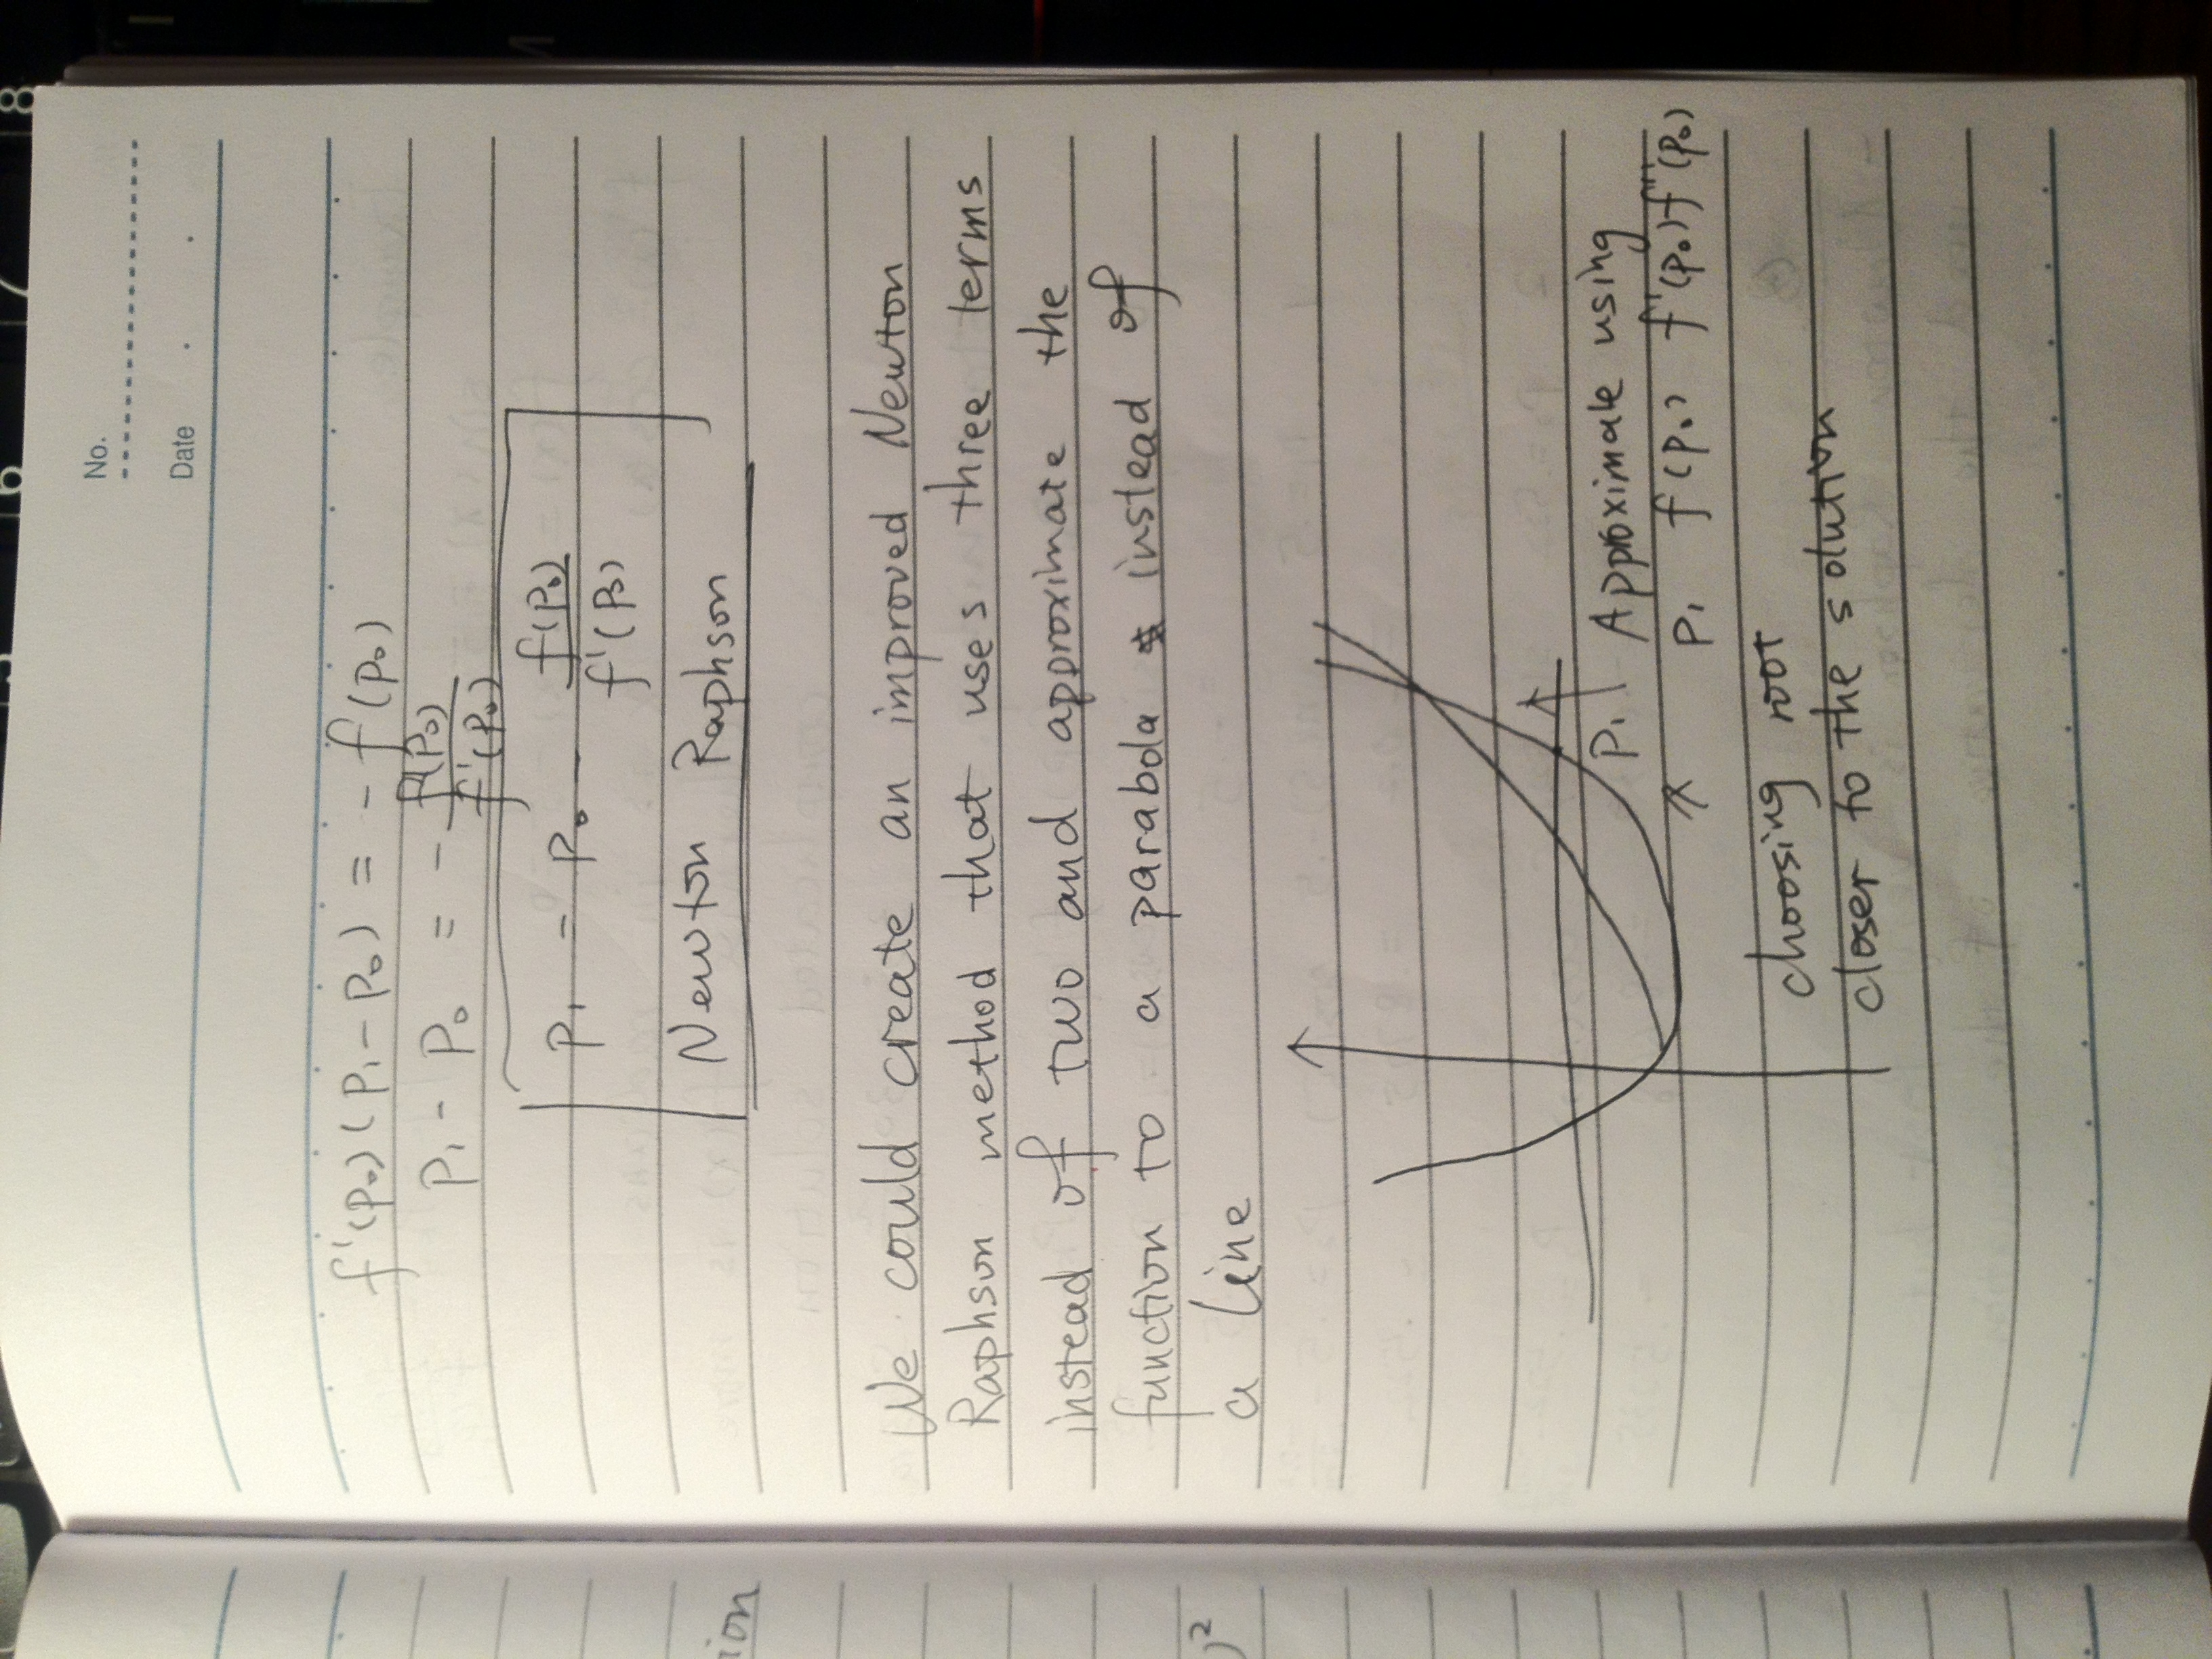 No.
Date
f'(P₀)(P₁-P₀) = - f(P₀)
P₁ - P₀ = - f(P₀)/f'(P₀)
P₁ = P₀ - f(P₀)/f'(P₀)
Newton Raphson
We could create an improved Newton
Raphson method that uses three terms
instead of two and approximate the
function to a parabola instead of
a line
P₁ Approximate using
P₁ f(P₀) f'(P₀) f''(P₀)
choosing root
closer to the solution
ion
)²
8
6